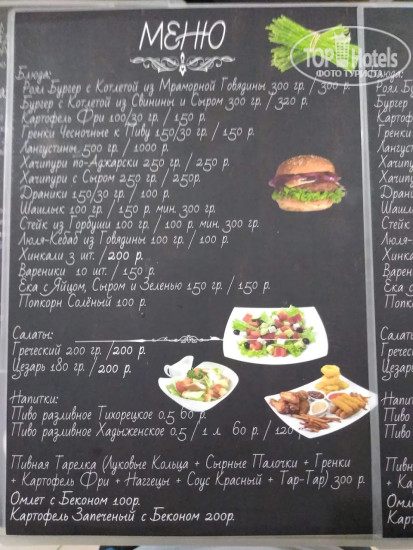 МЕНЮ
TOP Hotels
ФОТО ТУРИСТА
Блюда:
Роял Бургер с Котлетой из Мраморной Говядины 300 гр. / 300 р.
Бургер с Котлетой из Свинины и Сыром 300 гр. / 320 р.
Картофель Фри 100/30 гр. / 150 р.
Гренки Чесночные к Пиву 150/30 гр. / 150 р.
Лангустины 500 гр. / 1000 р.
Хачипури по-Аджарски 250 гр. / 250 р.
Хачипури с Сыром 250 гр. / 250р.
Драники 150/30 гр. / 100 р.
Шашлык 100 гр. / 150 р. мин. 300 гр.
Стейк из Горбуши 100 гр. / 100 р. мин. 300 гр.
Люля-Кебаб из Говядины 100 гр. / 100 р.
Хинкали 3 шт. /200 р.
Вареники 10 шт. / 150 р.
Ека с Яйцом, Сыром и Зеленью 150 гр. / 150 р.
Попкорн Солёный 100 р.
Салаты:
Греческий 200 гр. /200 р.
Цезарь 180 гр. /200 р.
Напитки:
Пиво разливное Тихорецкое 0.5 60 р.
Пиво разливное Хадыженское 0.5 / 1 л 60 р. / 120 р.
Пивная Тарелка (Луковые Кольца + Сырные Палочки + Гренки
+ Картофель Фри + Наггецы + Соус Красный + Тар-Тар) 300 р.
Омлет с Беконом 100р.
Картофель Запеченый с Беконом 200р.